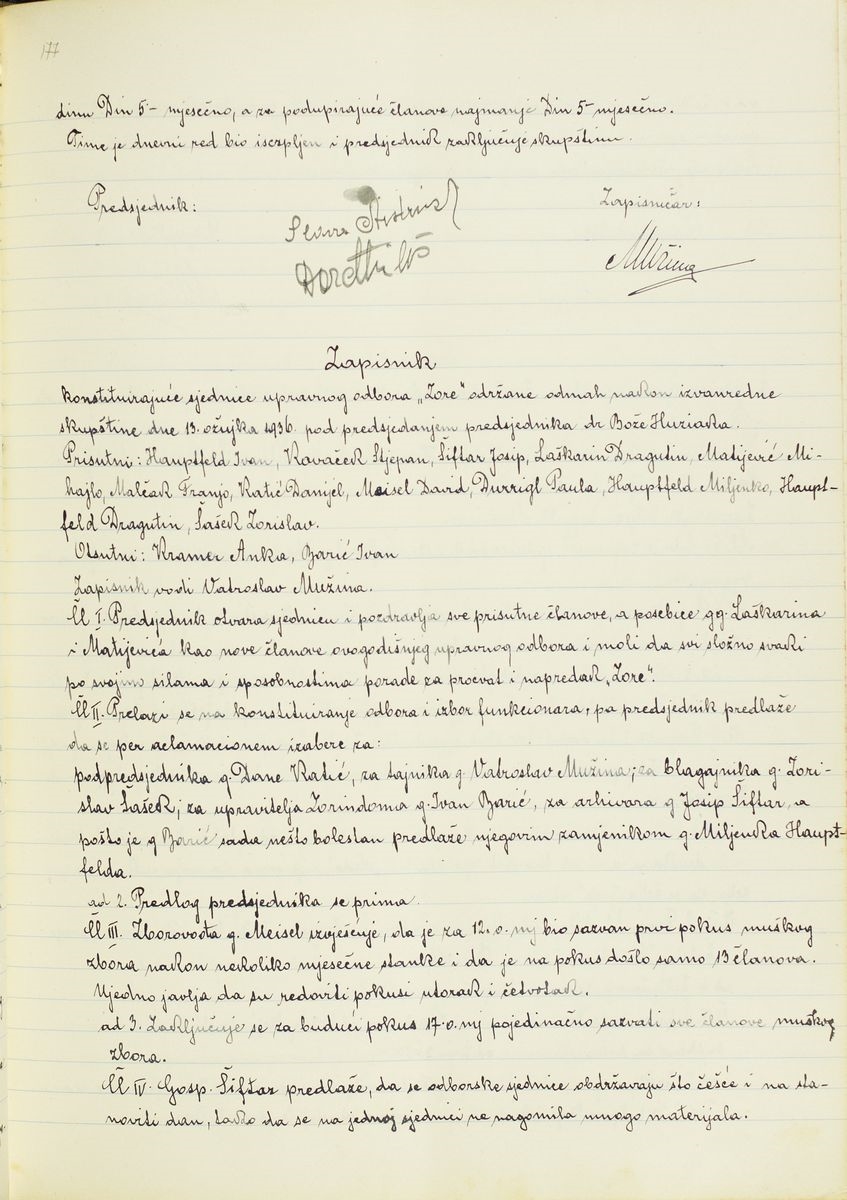 177
dinu Din 5·- mjesečno, a za podupirajuće članove najmanje Din 5- mjesečno.
Time je dnevni red bio iscrpljen i predsjednik zaključuje skupštinu.
Predsjednik:
Zapisničar:
MMužina
Zapisnik
konstituirajuće sjednice upravnog odbora „Zore" održane odmah nakon izvanredne
skupštine dne 13. ožujka 1936. pod predsjedanjem predsjednika dr Bože Huziaka.
Prisutni: Hauptfeld Ivan, Kavaček Stjepan, Šiftar Josip, Laškarin Dragutin, Matijević Mi-
hajlo, Malčak Franjo, Katić Danijel, Meisel David, Durrigl Paula, Hauptfeld Miljenko, Haupt-
feld Dragutin, Šašek Zorislav.
Otsutni: Kramer Anka, Barić Ivan
Zapisnik vodi Vatroslav Mužina.
Čl I. Predsjednik otvara sjednicu i pozdravlja sve prisutne članove, a posebice gg. Laškarina
i Matijevića kao nove članove ovogodišnjeg upravnog odbora i moli da svi složno svaki
po svojim silama i sposobnostima porade za procvat i napredak „Zore".
Čl II. Prelazi se na konstituiranje odbora i izbor funkcionara, pa predsjednik predlaže
da se per aclamacionem izabere za:
podpredsjednika g. Dane Katić, za tajnika g. Vatroslav Mužina; za blagajnika g. Zori-
slav Šašek; za upravitelja Zorindoma g. Ivan Barić, za arhivara g Josip Šiftar, a
pošto je g Barić sada nešto bolestan predlaže njegovim zamjenikom g. Miljenka Haupt-
felda.
ad 2. Predlog predsjednika se prima.
Čl III. Zborovođa g. Meisel izvješćuje, da je za 12. o. mj bio sazvan prvi pokus muškog
zbora nakon nekoliko mjesečne stanke i da je na pokus došlo samo 13 članova.
Ujedno javlja da su redoviti pokusi utorak i četvrtak.
ad 3. Zaključuje se za budući pokus 17. o. mj pojedinačno sazvati sve članove muškog
zbora.
Čl IV. Gosp. Šiftar predlaže, da se odborske sjednice obdržavaju što češće i na sta-
noviti dan, tako da se na jednoj sjednici ne nagomila mnogo materijala.